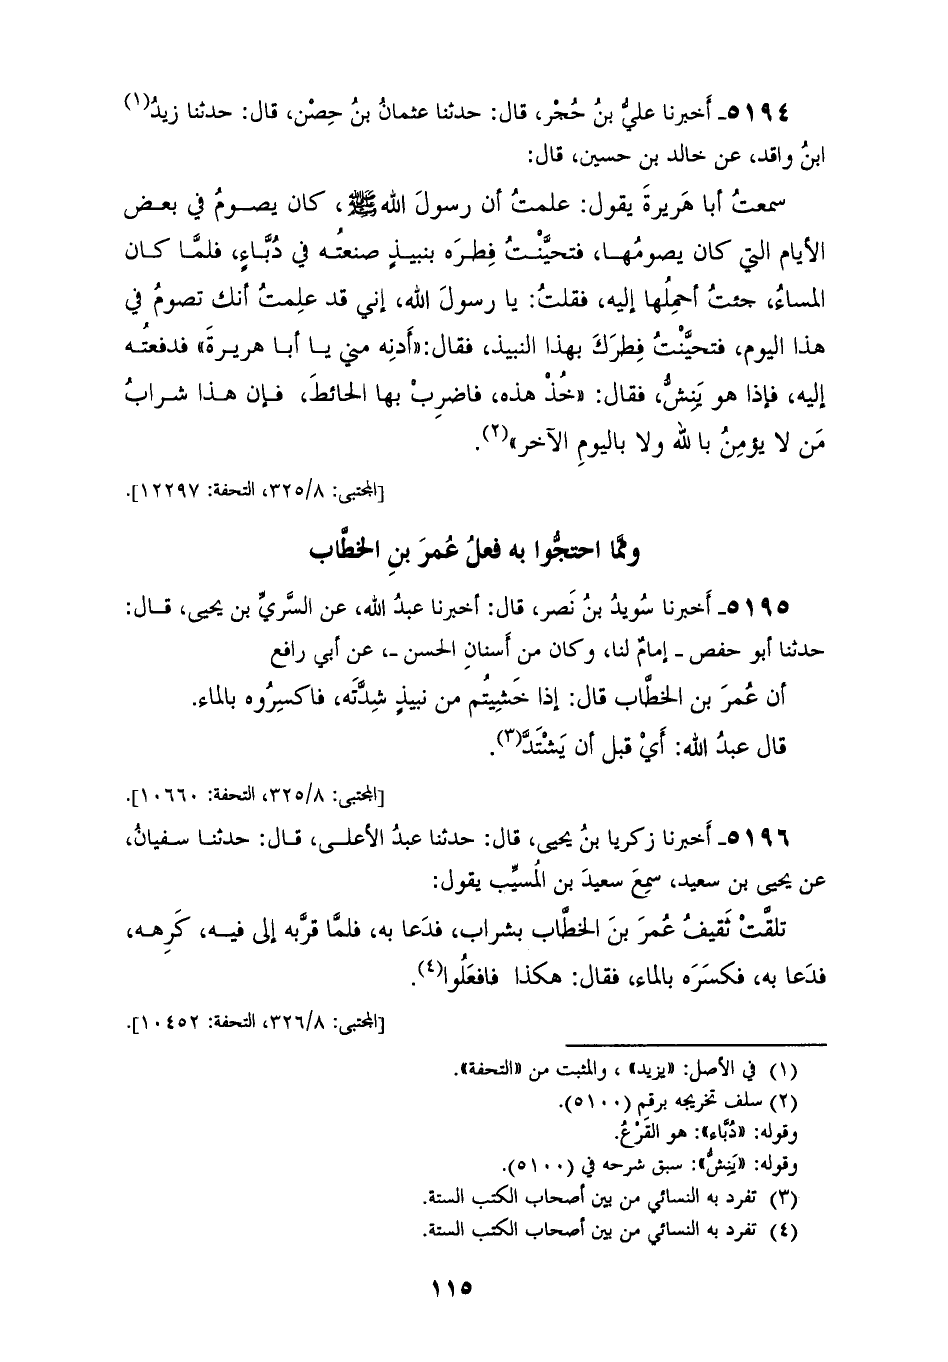 ٥١٩٤ـ أَخبرنا عليُّ بنُ حُجْر، قال: حدثنا عثمانُ بنُ حِصْن، قال: حدثنا زيدُ(١)
ابنُ واقد، عن خالد بن حسين، قال:
سمعتُ أبا هَريرةَ يقول: علمتُ أن رسولَ الله ﷺ، كان يصومُ في بعض
الأيام التي كان يصومُها، فتحيَّنْتُ فِطرَه بنبيذٍ صنعتُه في دُبَّاءٍ، فلمَّا كان
المساءُ، جئتُ أحمِلُها إليه، فقلتُ: يا رسولَ الله، إني قد علِمتُ أنك تصومُ في
هذا اليوم، فتحيَّنْتُ فِطرَكَ بهذا النبيذ، فقال:«أَدنِه مني يا أبا هريرةَ» فدفعتُه
إليه، فإذا هو يَنِشُّ، فقال: «خُذْ هذه، فاضرِبْ بها الحائطَ، فإن هذا شرابُ
مَن لا يؤمِنُ بالله ولا باليومِ الآخر»(٢).
[المجتبى: ٣٢٥/٨، التحفة: ١٢٢٩٧].
ومَّما احتجُّوا به فعلُ عُمرَ بنِ الخطَّاب
٥١٩٥ـ أَخبرنا سُويدُ بنُ نَصر، قال: أخبرنا عبدُ الله، عن السَّريِّ بن يحيى، قال:
حدثنا أبو حفص ـ إمامٌ لنا، وكان من أَسنانِ الحسن ـ، عن أبي رافع
أن عُمرَ بن الخطَّاب قال: إذا خَشِيتُم من نبيذٍ شِدَّتَه، فاكسِرُوه بالماء.
قال عبدُ الله: أَيْ قبل أن يَشْتَدَّ(٣).
[المجتبى: ٣٢٥/٨، التحفة: ١٠٦٦٠].
٥١٩٦ـ أَخبرنا زكريا بنُ يحيى، قال: حدثنا عبدُ الأعلى، قال: حدثنا سفيانُ،
عن يحيى بن سعيد، سمِعَ سعيدَ بن المُسيِّب يقول:
تلقَّتْ ثَقيفُ عُمرَ بنَ الخطَّاب بشراب، فدَعا به، فلمَّا قرَّبه إلى فيه، كَرِهه،
فدَعا به، فكسَرَه بالماء، فقال: هكذا فافعَلُوا(٤).
[المجتبى: ٣٢٦/٨، التحفة: ١٠٤٥٢].
(١) في الأصل: «يزيد» ، والمثبت من «التحفة».
(٢) سلف تخريجه برقم (٥١٠٠).
وقوله: «دُبَّاء»: هو القَرْعُ.
وقوله: «يَنِشُّ»: سبق شرحه في (٥١٠٠).
(٣) تفرد به النسائي من بين أصحاب الكتب الستة.
(٤) تفرد به النسائي من بين أصحاب الكتب الستة.
١١٥